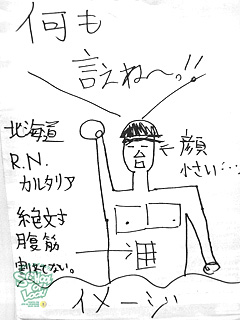 何も
言えね〜っ!!
北海道
R.N.
カルタリア
←顔
小さい…
絶対
腹筋
割れてない。
School Of Lock!
イメージ